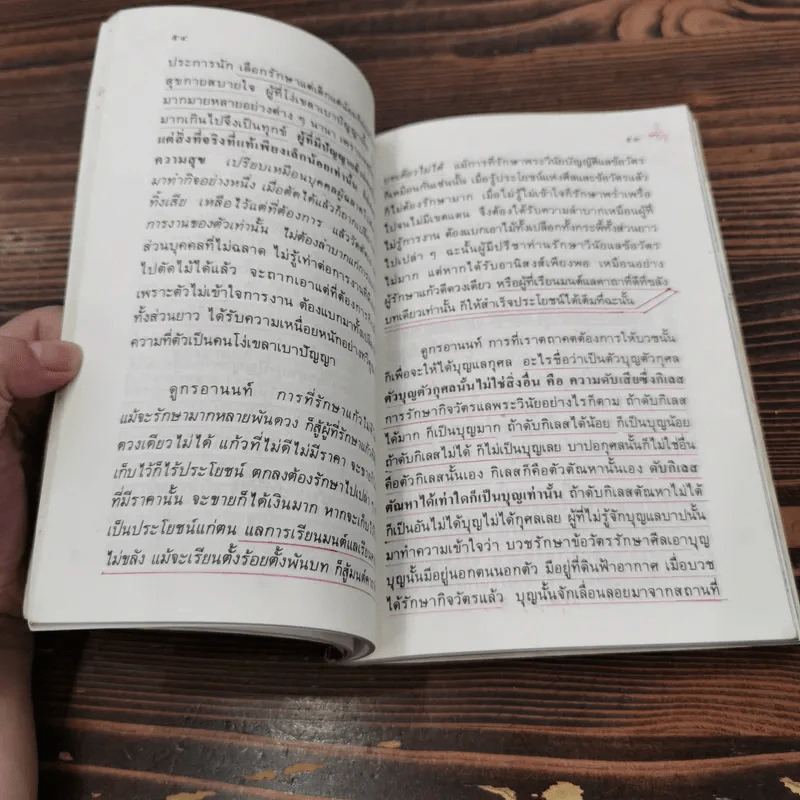 ๕๔
ประการนัก เลือกรักษาแต่เล็กแต่น้อย
สุขกายสบายใจ ผู้ที่โง่เขลาเบาปัญญา
มากมายหลายอย่างต่าง ๆ นานา เพราะ
มากเกินไปจึงเป็นทุกข์ ผู้ที่มีปัญญา
แต่สิ่งที่จริงที่แท้เพียงเล็กน้อยเท่านั้น
ความสุข เปรียบเหมือนบุคคลผู้ฉลาด
มาทำกิจอย่างหนึ่ง เมื่อตัดได้แล้วก็ถาก
ทิ้งเสีย เหลือไว้แต่ที่ต้องการ แล้ว
การงานของตัวเท่านั้น ไม่ต้องลำบากแก่การ
ส่วนบุคคลที่ไม่ฉลาด ไม่รู้เท่าต่อการงาน
ไปตัดไม้ได้แล้ว จะถากเอาแต่ที่ต้องการ
เพราะตัวไม่เข้าใจการงาน ต้องแบกมาทั้ง
ทั้งส่วนยาว ได้รับความเหนื่อยหนักอย่าง
ความที่ตัวเป็นคนโง่เขลาเบาปัญญา
ดูกรอานนท์ การที่รักษาแก้ว
แม้จะรักษามากหลายพันดวง ก็สู้ผู้ที่รักษาแก้ว
ดวงเดียวไม่ได้ แก้วที่ไม่ดีไม่มีราคา จะขาย
เก็บไว้ก็ไร้ประโยชน์ ตกลงต้องรักษาไปเปล่า
ที่มีราคานั้น จะขายก็ได้เงินมาก หากจะเก็บ
เป็นประโยชน์แก่ตน แลการเรียนมนต์แลเรียน
ไม่ขลัง แม้จะเรียนตั้งร้อยตั้งพันบท ก็สู้มนต์
๕๕
บทเดียวไม่ได้ แม้การที่รักษาพระวินัยบัญญัติแลข้อวัตร
ก็เหมือนกันเช่นนั้น เมื่อรู้ประโยชน์แห่งศีลและข้อวัตรแล้ว
ก็ไม่ต้องรักษามาก เมื่อไม่รู้ไม่เข้าใจก็รักษาพร่ำเพรื่อ
ไปจนไม่มีเขตแดน จึงต้องได้รับความลำบากเหมือนผู้ที่
ไม่รู้การงาน ต้องแบกเอาไม้ทั้งเปลือกทั้งกระพี้ทั้งส่วนยาว
ไปเปล่า ๆ ฉะนั้นผู้มีปรีชาท่านรักษาวินัยแลข้อวัตร
ไม่มาก แต่หากได้รับอานิสงส์เพียงพอ เหมือนอย่าง
ผู้รักษาแก้วดีดวงเดียว หรือผู้ที่เรียนมนต์แลคาถาที่ดีที่ขลัง
บทเดียวเท่านั้น ก็ให้สำเร็จประโยชน์ได้เต็มที่ฉะนั้น
ดูกรอานนท์ การที่เราตถาคตต้องการให้บวชนั้น
ก็เพื่อจะให้ได้บุญแลกุศล อะไรชื่อว่าเป็นตัวบุญตัวกุศล
ตัวบุญตัวกุศลนั้นไม่ใช่สิ่งอื่น คือ ความดับเสียซึ่งกิเลส
การรักษากิจวัตรแลพระวินัยอย่างไรก็ตาม ถ้าดับกิเลส
ได้มาก ก็เป็นบุญมาก ถ้าดับกิเลสได้น้อย ก็เป็นบุญน้อย
ถ้าดับกิเลสไม่ได้ ก็ไม่เป็นบุญเลย บาปอกุศลนั้นก็ไม่ใช่อื่น
คือตัวกิเลสนั้นเอง กิเลสก็คือตัวตัณหานั้นเอง ดับกิเลส
ตัณหาได้เท่าใดก็เป็นบุญเท่านั้น ถ้าดับกิเลสตัณหาไม่ได้
ก็เป็นอันไม่ได้บุญไม่ได้กุศลเลย ผู้ที่ไม่รู้จักบุญแลบาปนั้น
มาทำความเข้าใจว่า บวชรักษาข้อวัตรรักษาศีลเอาบุญ
บุญนั้นมีอยู่นอกตนนอกตัว มีอยู่ที่ดินฟ้าอากาศ เมื่อบวช
ได้รักษากิจวัตรแล้ว บุญนั้นจักเลื่อนลอยมาจากสถานที่